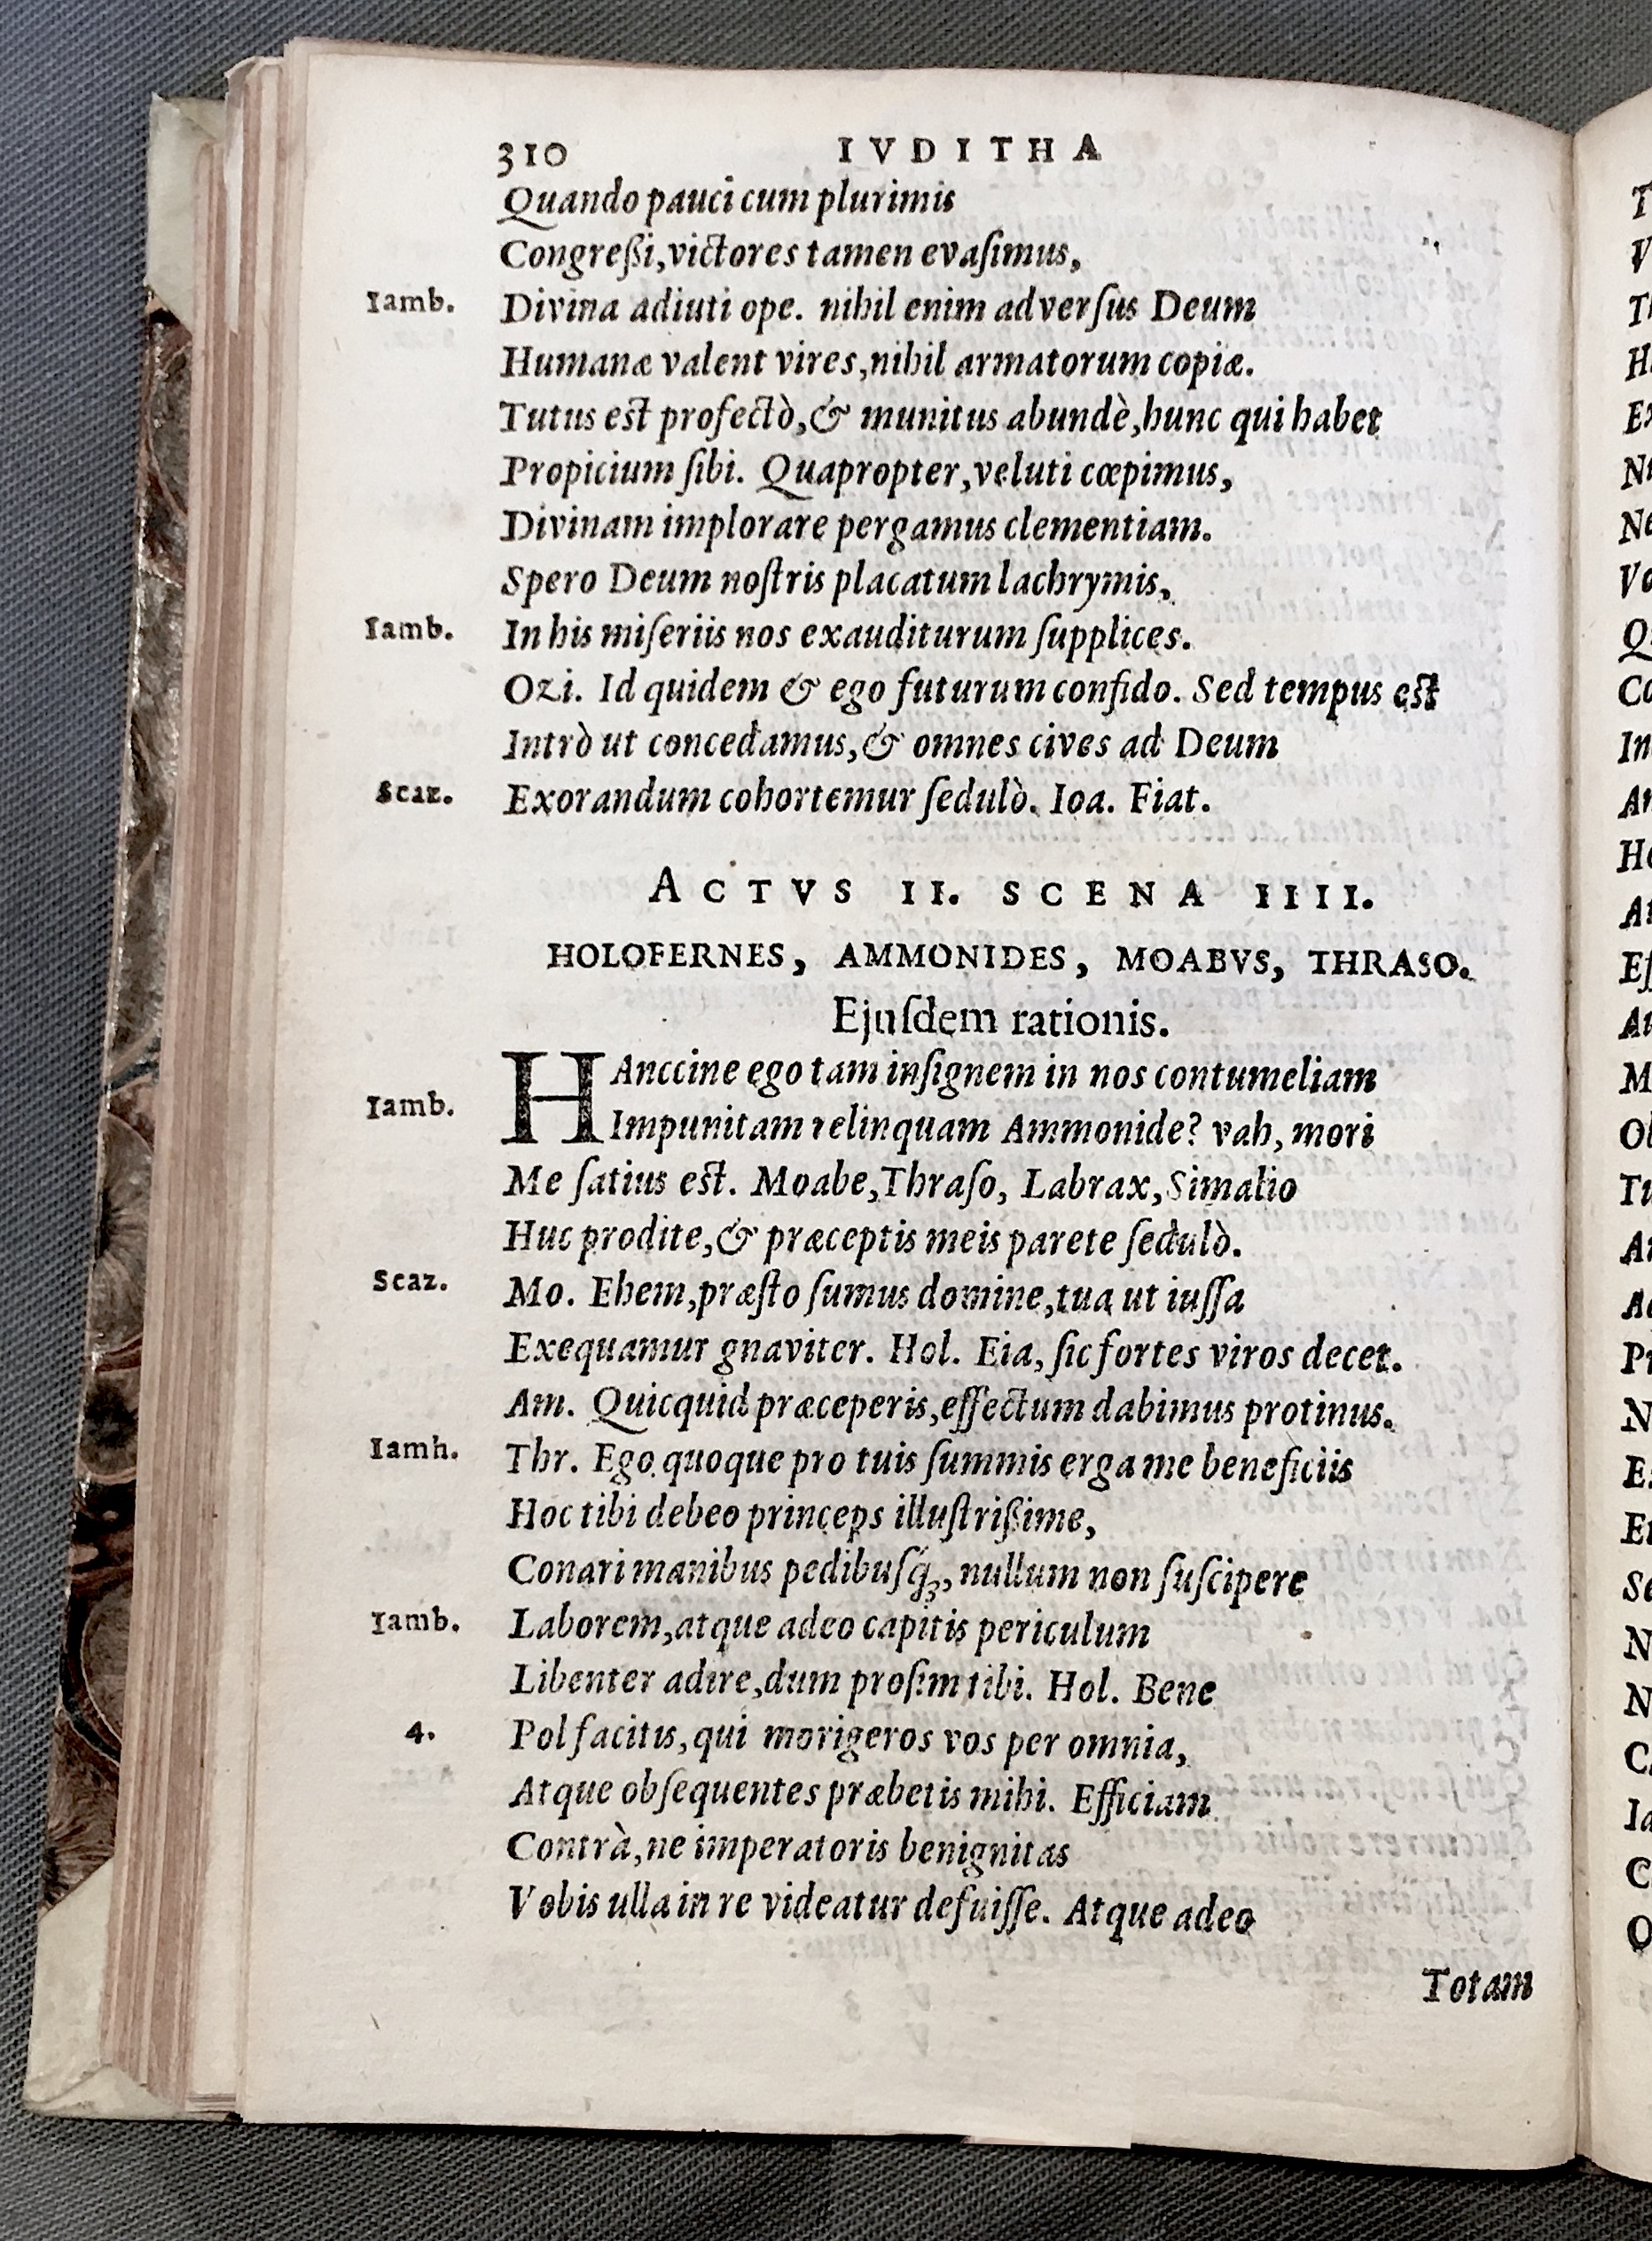 310 IVDITHA
Quando pauci cum plurimis
Congreßi, victores tamen evaſimus,
Iamb. Divina adiuti ope. nihil enim adverſus Deum
Humanæ valent vires, nihil armatorum copiæ.
Tutus est profectò, & munitus abundè, hunc qui habet
Propicium ſibi. Quapropter, veluti cœpimus,
Divinam implorare pergamus clementiam.
Spero Deum noſtris placatum lachrymis,
Iamb. In his miſeriis nos exauditurum ſupplices.
Ozi. Id quidem & ego futurum confido. Sed tempus est
Intrò ut concedamus, & omnes cives ad Deum
Scaz. Exorandum cohortemur ſedulò. Ioa. Fiat.
ACTVS II. SCENA IIII.
HOLOFERNES, AMMONIDES, MOABVS, THRASO.
Ejuſdem rationis.
HAnccine ego tam inſignem in nos contumeliam
Iamb. Impunitam relinquam Ammonide? vah, mori
Me ſatius est. Moabe, Thraſo, Labrax, Simalio
Huc prodite, & præceptis meis parete ſedulò.
Scaz. Mo. Ehem, præſto ſumus domine, tua ut iuſſa
Exequamur gnaviter. Hol. Eia, ſic fortes viros decet.
Am. Quicquid præceperis, effectum dabimus protinus.
Iamh. Thr. Ego quoque pro tuis ſummis erga me beneficiis
Hoc tibi debeo princeps illuſtrißime,
Conari manibus pedibuſq́ꝫ, nullum non ſuſcipere
Iamb. Laborem, atque adeo capitis periculum
Libenter adire, dum proſim tibi. Hol. Bene
4. Pol facitis, qui morigeros vos per omnia,
Atque obſequentes præbetis mihi. Efficiam
Contrà, ne imperatoris benignitas
Vobis ulla in re videatur defuiſſe. Atque adeo
Totam